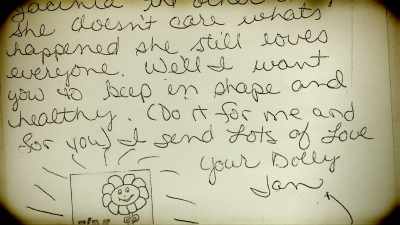 the other
She doesn't care whats
happened she still loves
everyone. Well I want
you to keep in shape and
healthy. (Do it for me and
for you) I send Lots of Love
your Dolly
Jan